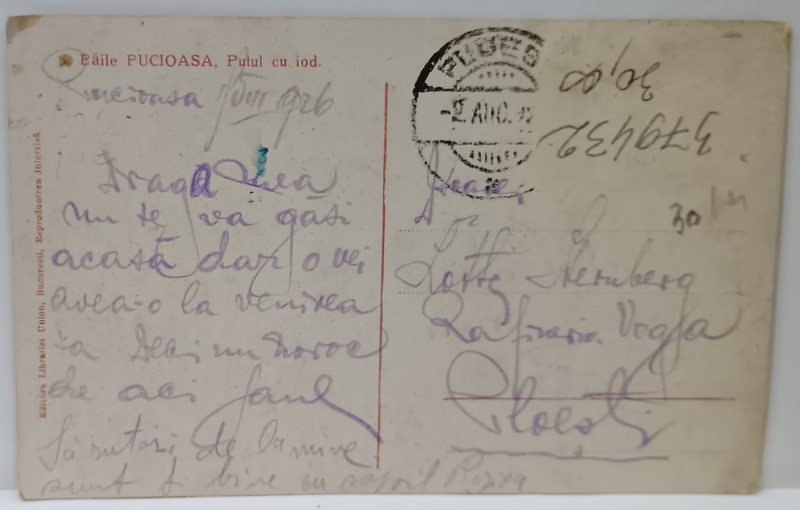 Băile PUCIOASA, Puțul cu iod.
Pucioasa 1/VIII 926
Draga mea
nu te va găsi
acasă dar o vei
avea-o la venirea
ta Deci un noroc
de aci Saul
Sărutări de la mine
sunt și bine cu
Editura Librăriei Union, București, Reproducerea Interzisă
AUG.
30,00
379432
30 lei
Lotty Sternberg
Rafinăria Vega
Ploești